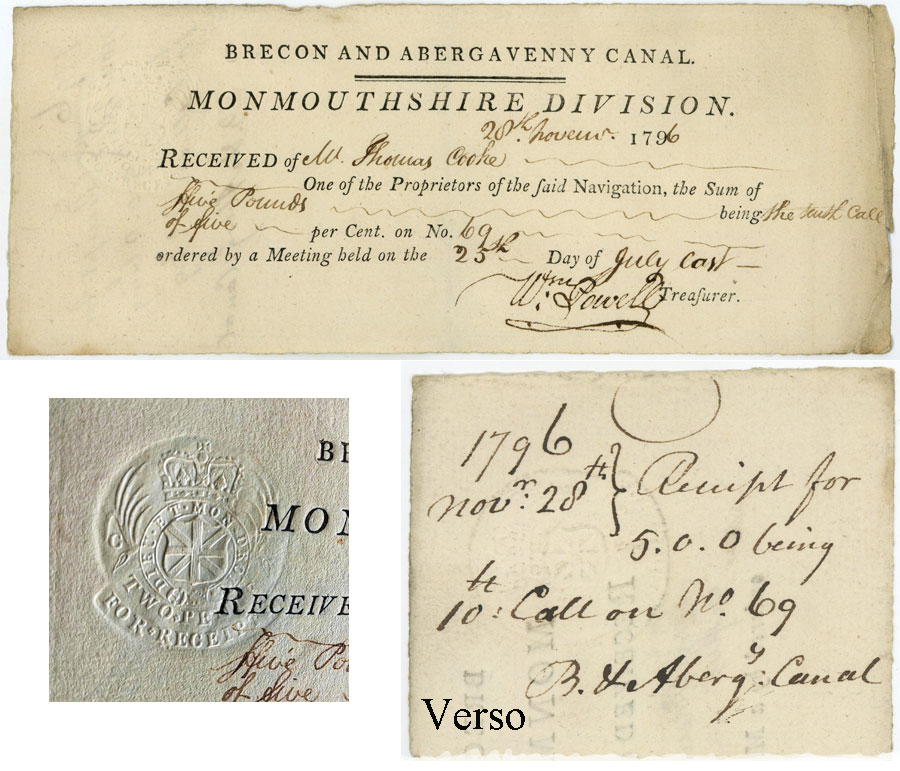 BRECON AND ABERGAVENNY CANAL.
MONMOUTHSHIRE DIVISION.
28th. Novemr. 1796
RECEIVED of Mr. Thomas Cooke
One of the Proprietors of the ſaid Navigation, the Sum of
Five Pounds being the tenth Call
of five per Cent. on No. 69
ordered by a Meeting held on the 25th Day of July last
Wm. Powell Treaſurer.
BR
MON
RECEIVE
DIEU·ET·MON·DR
TWO·PE
FOR·RECEI
Five Pou
of five
1796
Novr. 28th } Receipt for
5.0.0 being
10th: Call on No. 69
B. & Abergy: Canal
Verso